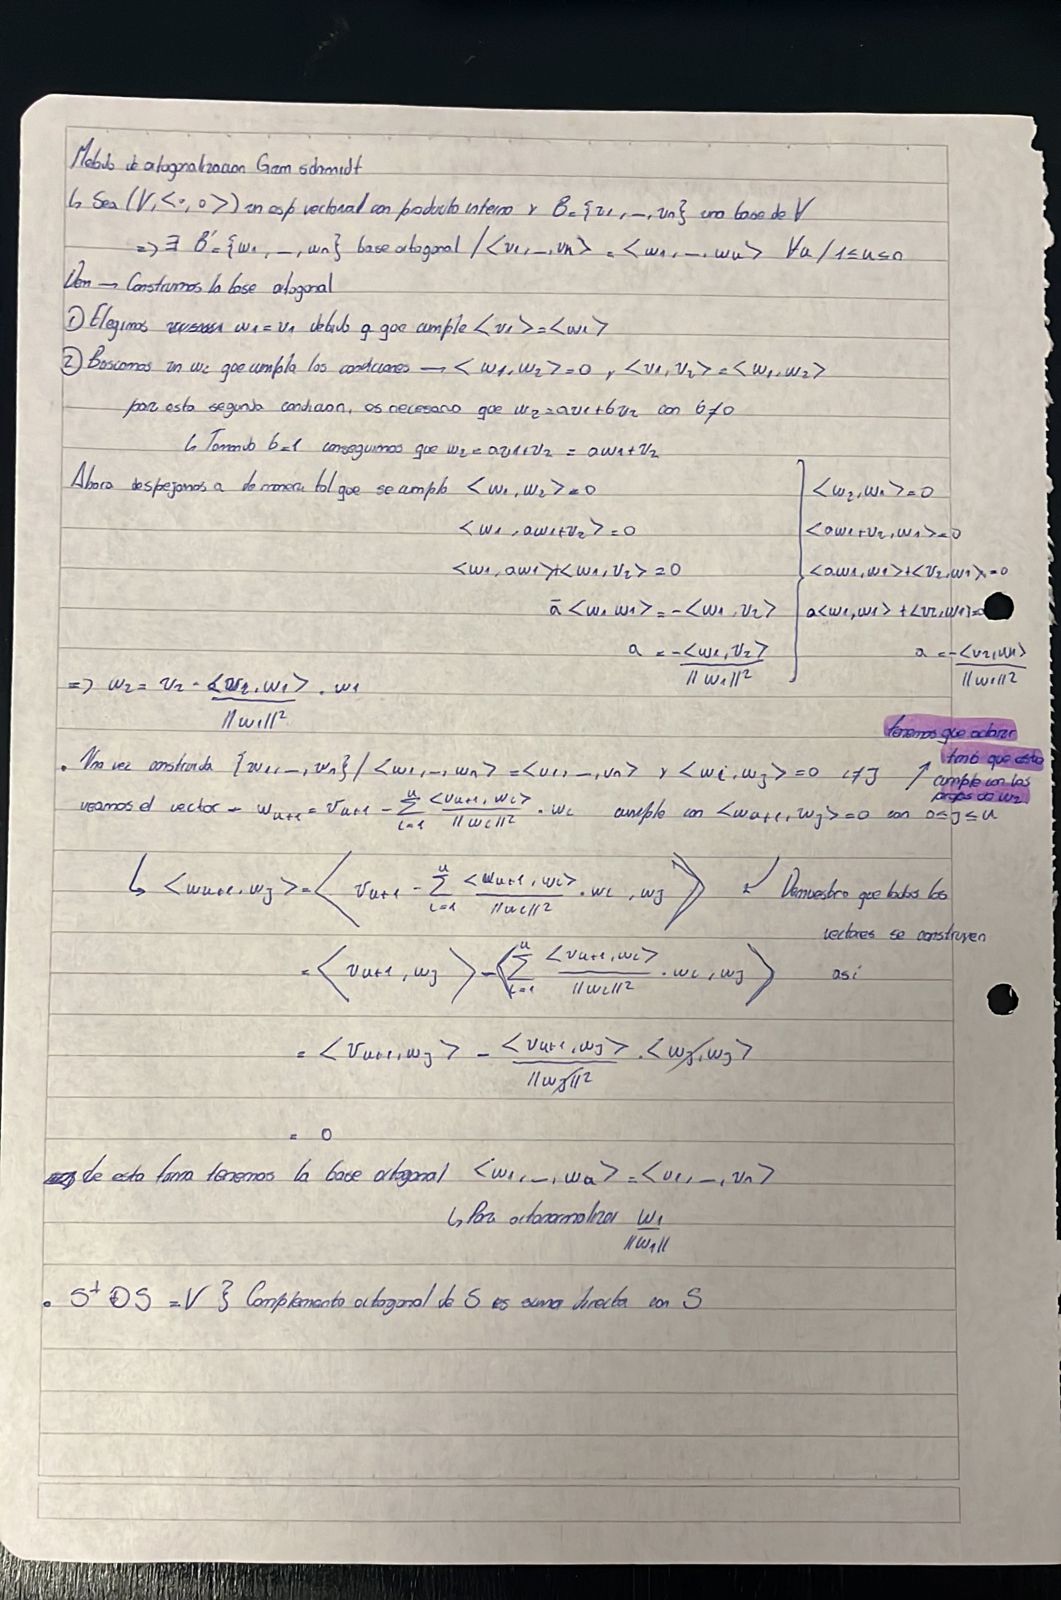 Metodo de ortogonalizacion Gram schmidt
↳ Sea (V,<·,o>) un esp vectorial con producto interno y B={v1,–,vn} una base de V
=> ∃ B'={w1,–,wn} base ortogonal /<v1,–,vu> = <w1,–,wu> ∀u /1≤u≤n
Dem → Construimos la base ortogonal
① Elegimos w1=v1 debido q que cumple <v1>=<w1>
② Buscamos un w2 que cumpla las condiciones → <w1,w2>=0 y <v1,v2>=<w1,w2>
para esta segunda condicion, es necesario que w2=av1+bv2 con b≠0
↳ Tomando b=1 conseguimos que w2=av1+v2 = aw1+v2
Ahora despejamos a de manera tal que se cumpla <w1,w2>=0
<w1,aw1+v2>=0
<w1,aw1>+<w1,v2>=0
ā<w1,w1>=-<w1,v2>
a = -<w1,v2>/||w1||²
<w2,w1>=0
<aw1+v2,w1>=0
<aw1,w1>+<v2,w1>=0
a<w1,w1>+<v2,w1>=0
a = -<v2,w1>/||w1||²
=> w2= v2 - <v2,w1>/||w1||² · w1
tenemos que aclarar
tmb que esto
cumple con los
de w2
. Una vez construida {w1,–,wn} / <w1,–,wn>=<v1,–,vn> y <wi,wj>=0 i≠j
veamos el vector → wu+1=vu+1 - Σ(i=1, u) <vu+1,wi>/||wi||² · wi cumple con <wu+1,wj>=0 con 0≤j≤u
↳ <wu+1,wj>=<vu+1 - Σ(i=1, u) <wu+1,wi>/||wi||² · wi,wj> ↙ Demuestro que todos los
vectores se construyen
así
=<vu+1,wj>-<Σ(i=1, u) <vu+1,wi>/||wi||² · wi,wj>
= <vu+1,wj> - <vu+1,wj>/||wj||² · <wj,wj>
= 0
de esta forma tenemos la base ortogonal <w1,–,wn>=<v1,–,vn>
↳ Para ortonormalizar w1/||w1||
. S⊥ ⊕ S = V } Complemento ortogonal de S es suma directa con S